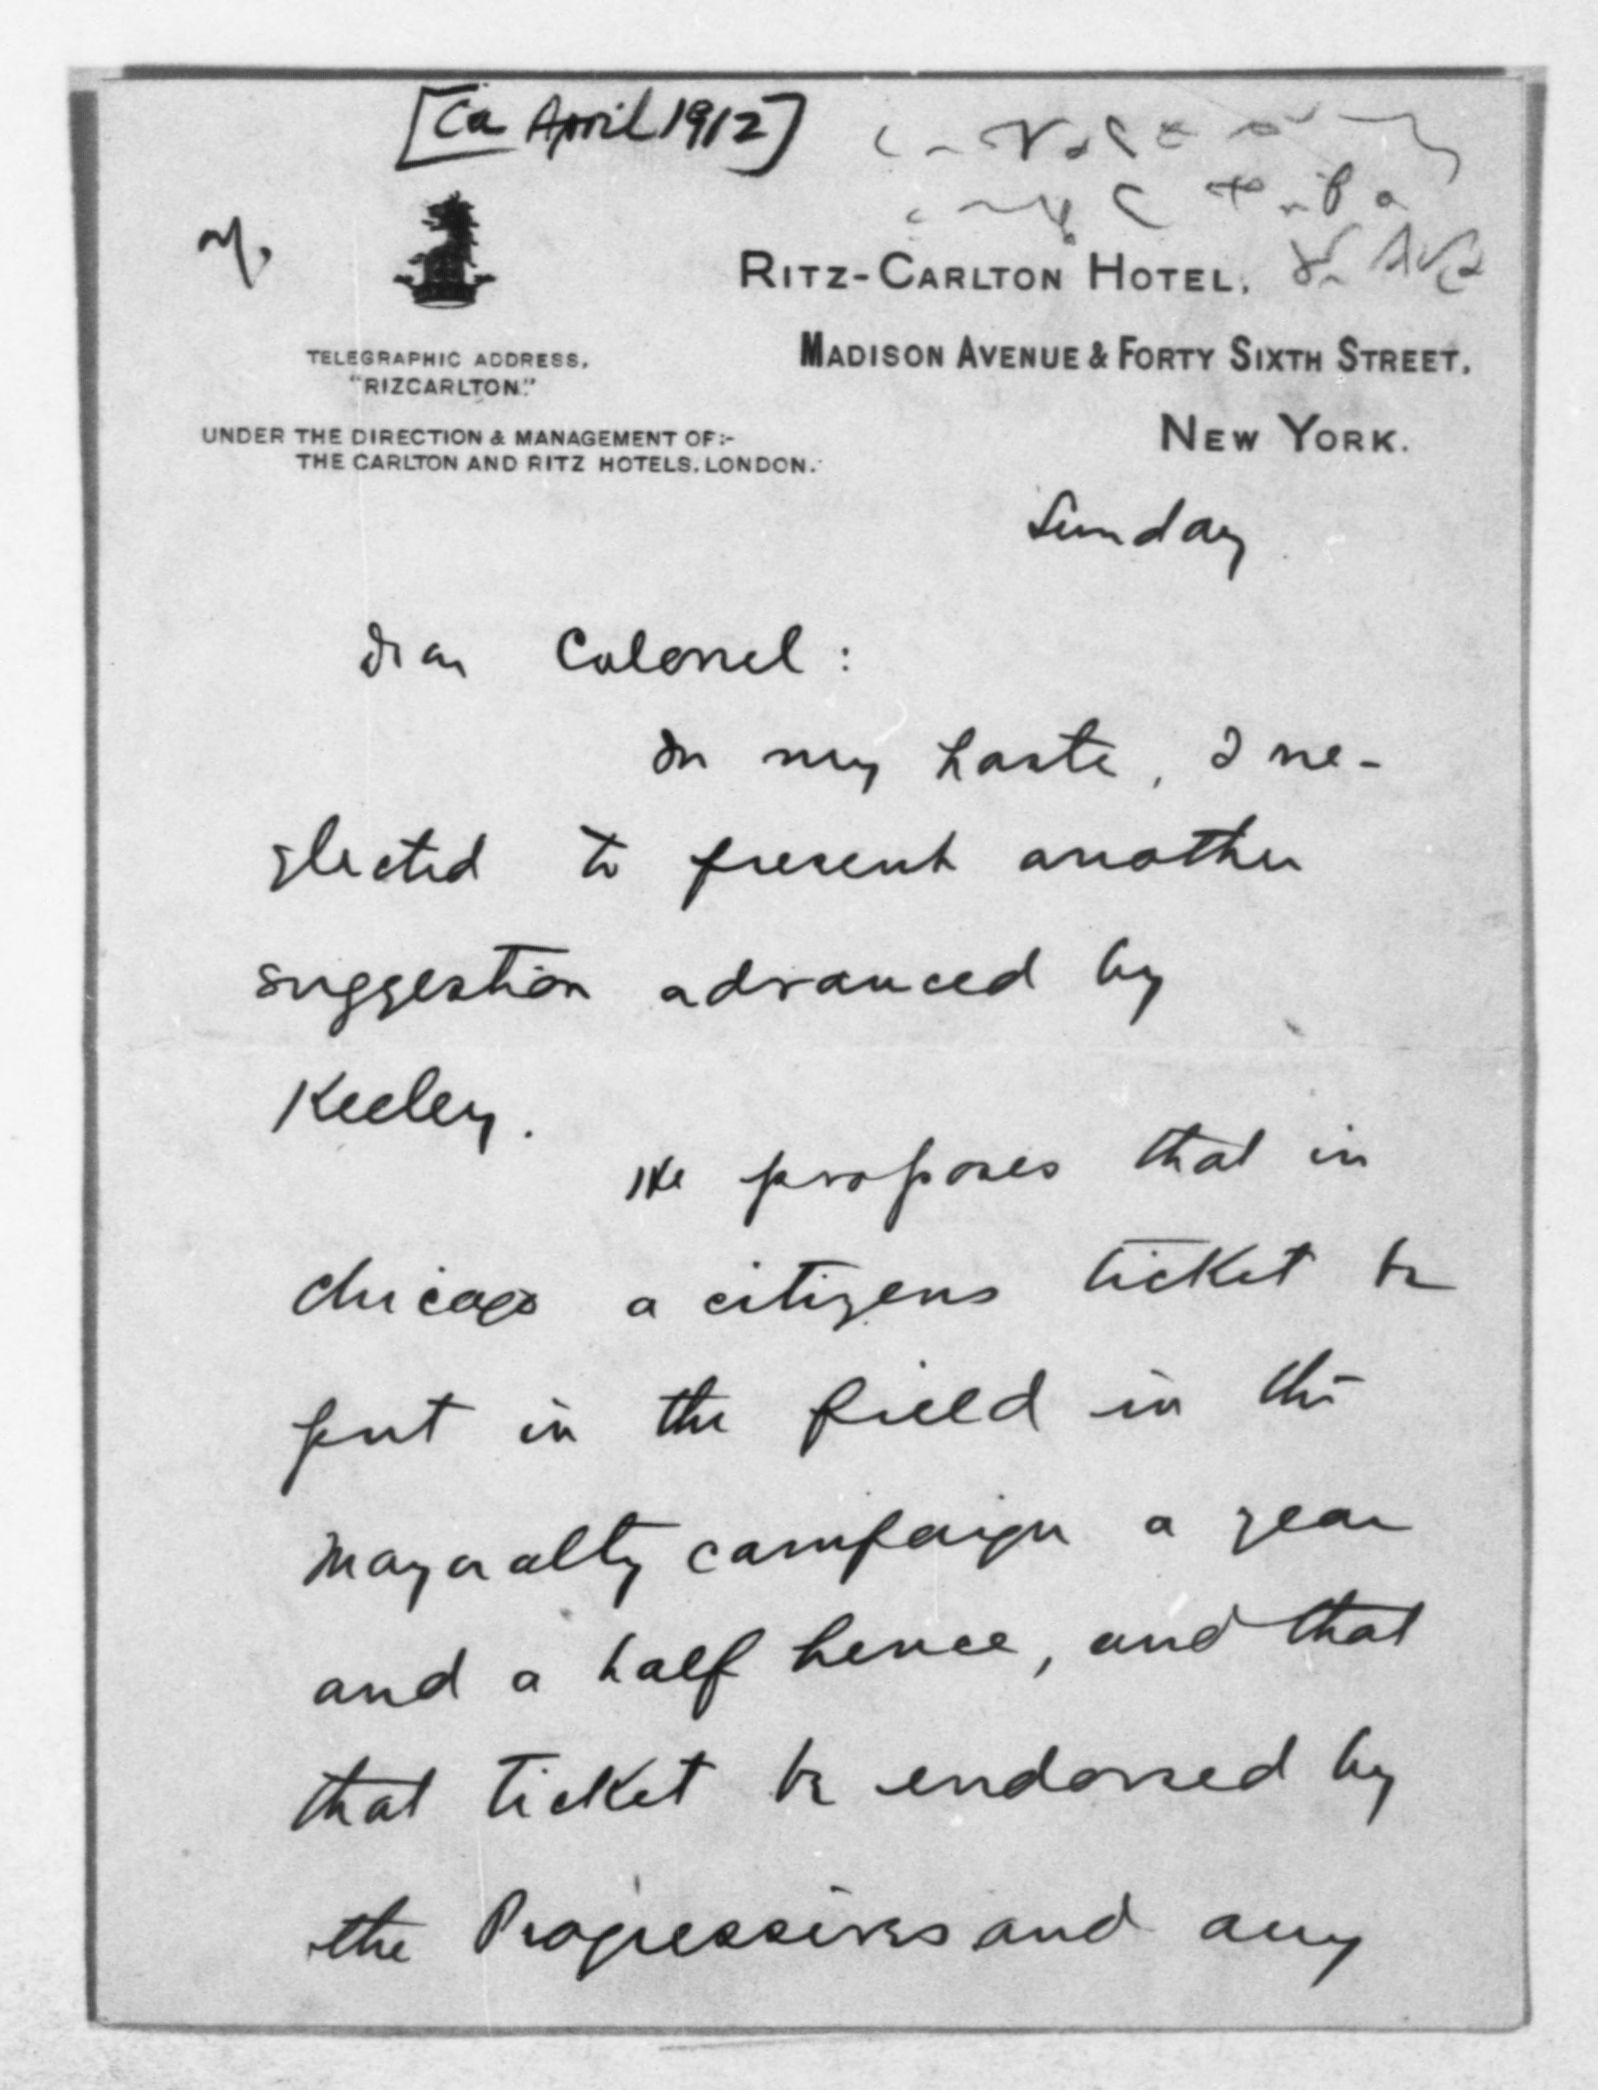 [Ca April 1912]
RITZ-CARLTON HOTEL,
MADISON AVENUE & FORTY SIXTH STREET,
NEW YORK.
TELEGRAPHIC ADDRESS,
"RIZCARLTON."
UNDER THE DIRECTION & MANAGEMENT OF:-
THE CARLTON AND RITZ HOTELS, LONDON.
Sunday
Dear Colonel:
In my haste, I ne-
glected to present another
suggestion advanced by
Keeley.
He proposes that in
Chicago a citizens ticket be
put in the field in the
Mayoralty campaign a year
and a half hence, and that
that ticket be endorsed by
the Progressives and any